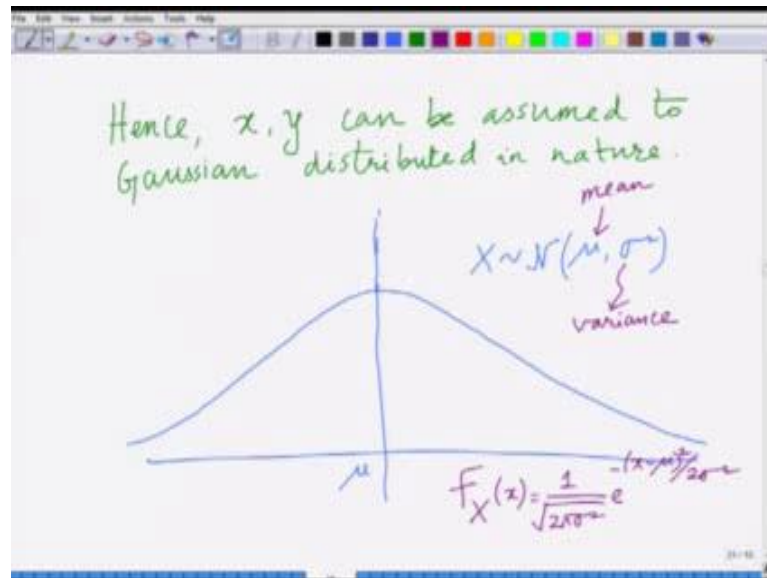 File Edit View Insert Actions Tools Help
Hence, x, y can be assumed to
Gaussian distributed in nature.
mean
X ~ N(μ, σ²)
variance
μ
F_X(x) = 1/√(2πσ²) e^(-(x-μ)²/2σ²)